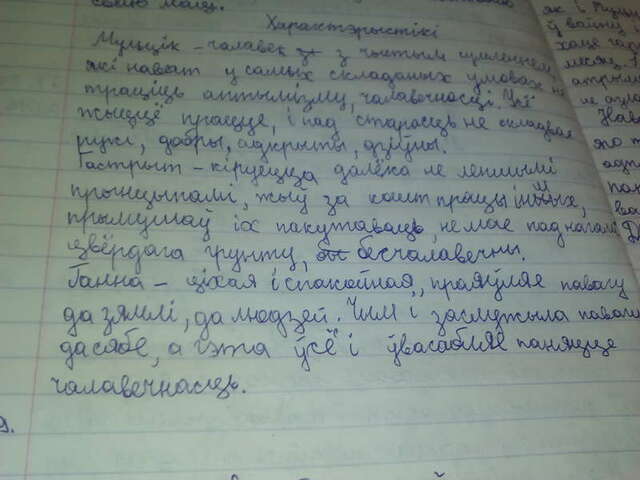 сваю маці.
Характэрыстікі
Мульцік – чалавек з чыстым сумленнем,
які нават у самых складаных умовах не
траціць аптымізму, чалавечнасці. Усё
жыццё працуе, і пад старасць не складвае
рукі, добры, адкрыты, дзіўны.
Гастрыт – кіруецца далёка не лепшымі
прынцыпамі, жыў за кошт працы іншых,
прымушаў іх пакутаваць, не мае пад нагамі
цвёрдага грунту, бесчалавечны.
Ганна – ціхая і спакойная, праяўляе павагу
да зямлі, да людзей. Чым і заслужыла павагу
да сябе, а гэта ўсё і ўвасабляе паняцце
чалавечнасць.
9.